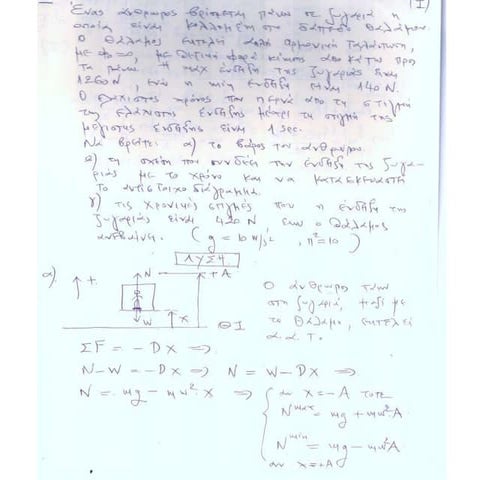 1)
Ένας άνθρωπος βρίσκεται πάνω σε ζυγαριά η
οποία είναι κολλημένη στο δάπεδο θαλάμου.
Ο θάλαμος εκτελεί απλή αρμονική ταλάντωση,
με φ₀=0, με θετική φορά κίνησης από κάτω προς
τα πάνω. Η max ένδειξη της ζυγαριάς είναι
1260 N, ενώ η min ένδειξη είναι 140 N.
Ο ελάχιστος χρόνος που περνά από τη στιγμή
της ελάχιστης ένδειξης μέχρι τη στιγμή της
μέγιστης ένδειξης είναι 1 sec.
Να βρείτε: α) το βάρος του ανθρώπου.
β) τη σχέση που συνδέει την ένδειξη της ζυγα-
ριάς με το χρόνο και να κατασκευαστεί
το αντίστοιχο διάγραμμα.
γ) τις χρονικές στιγμές που η ένδειξη της
ζυγαριάς είναι 420 N, ενώ ο θάλαμος
ανεβαίνει. (g = 10 m/s², π²=10)
ΛΥΣΗ
α) + N +A
W x ΘΙ
Ο άνθρωπος πάνω
στη ζυγαριά, μαζί με
το θάλαμο, εκτελεί
α.α.τ.
ΣF = -Dx ⇒
N-W = -Dx ⇒ N = W-Dx ⇒
N = mg - mω²x ⇒
αν x=-A τότε
Nmax = mg + mω²A
Nmin = mg - mω²A
αν x=+A